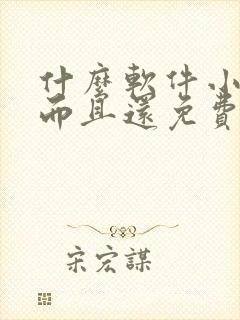 什麼軟件小
而且還免費
宋宏謀